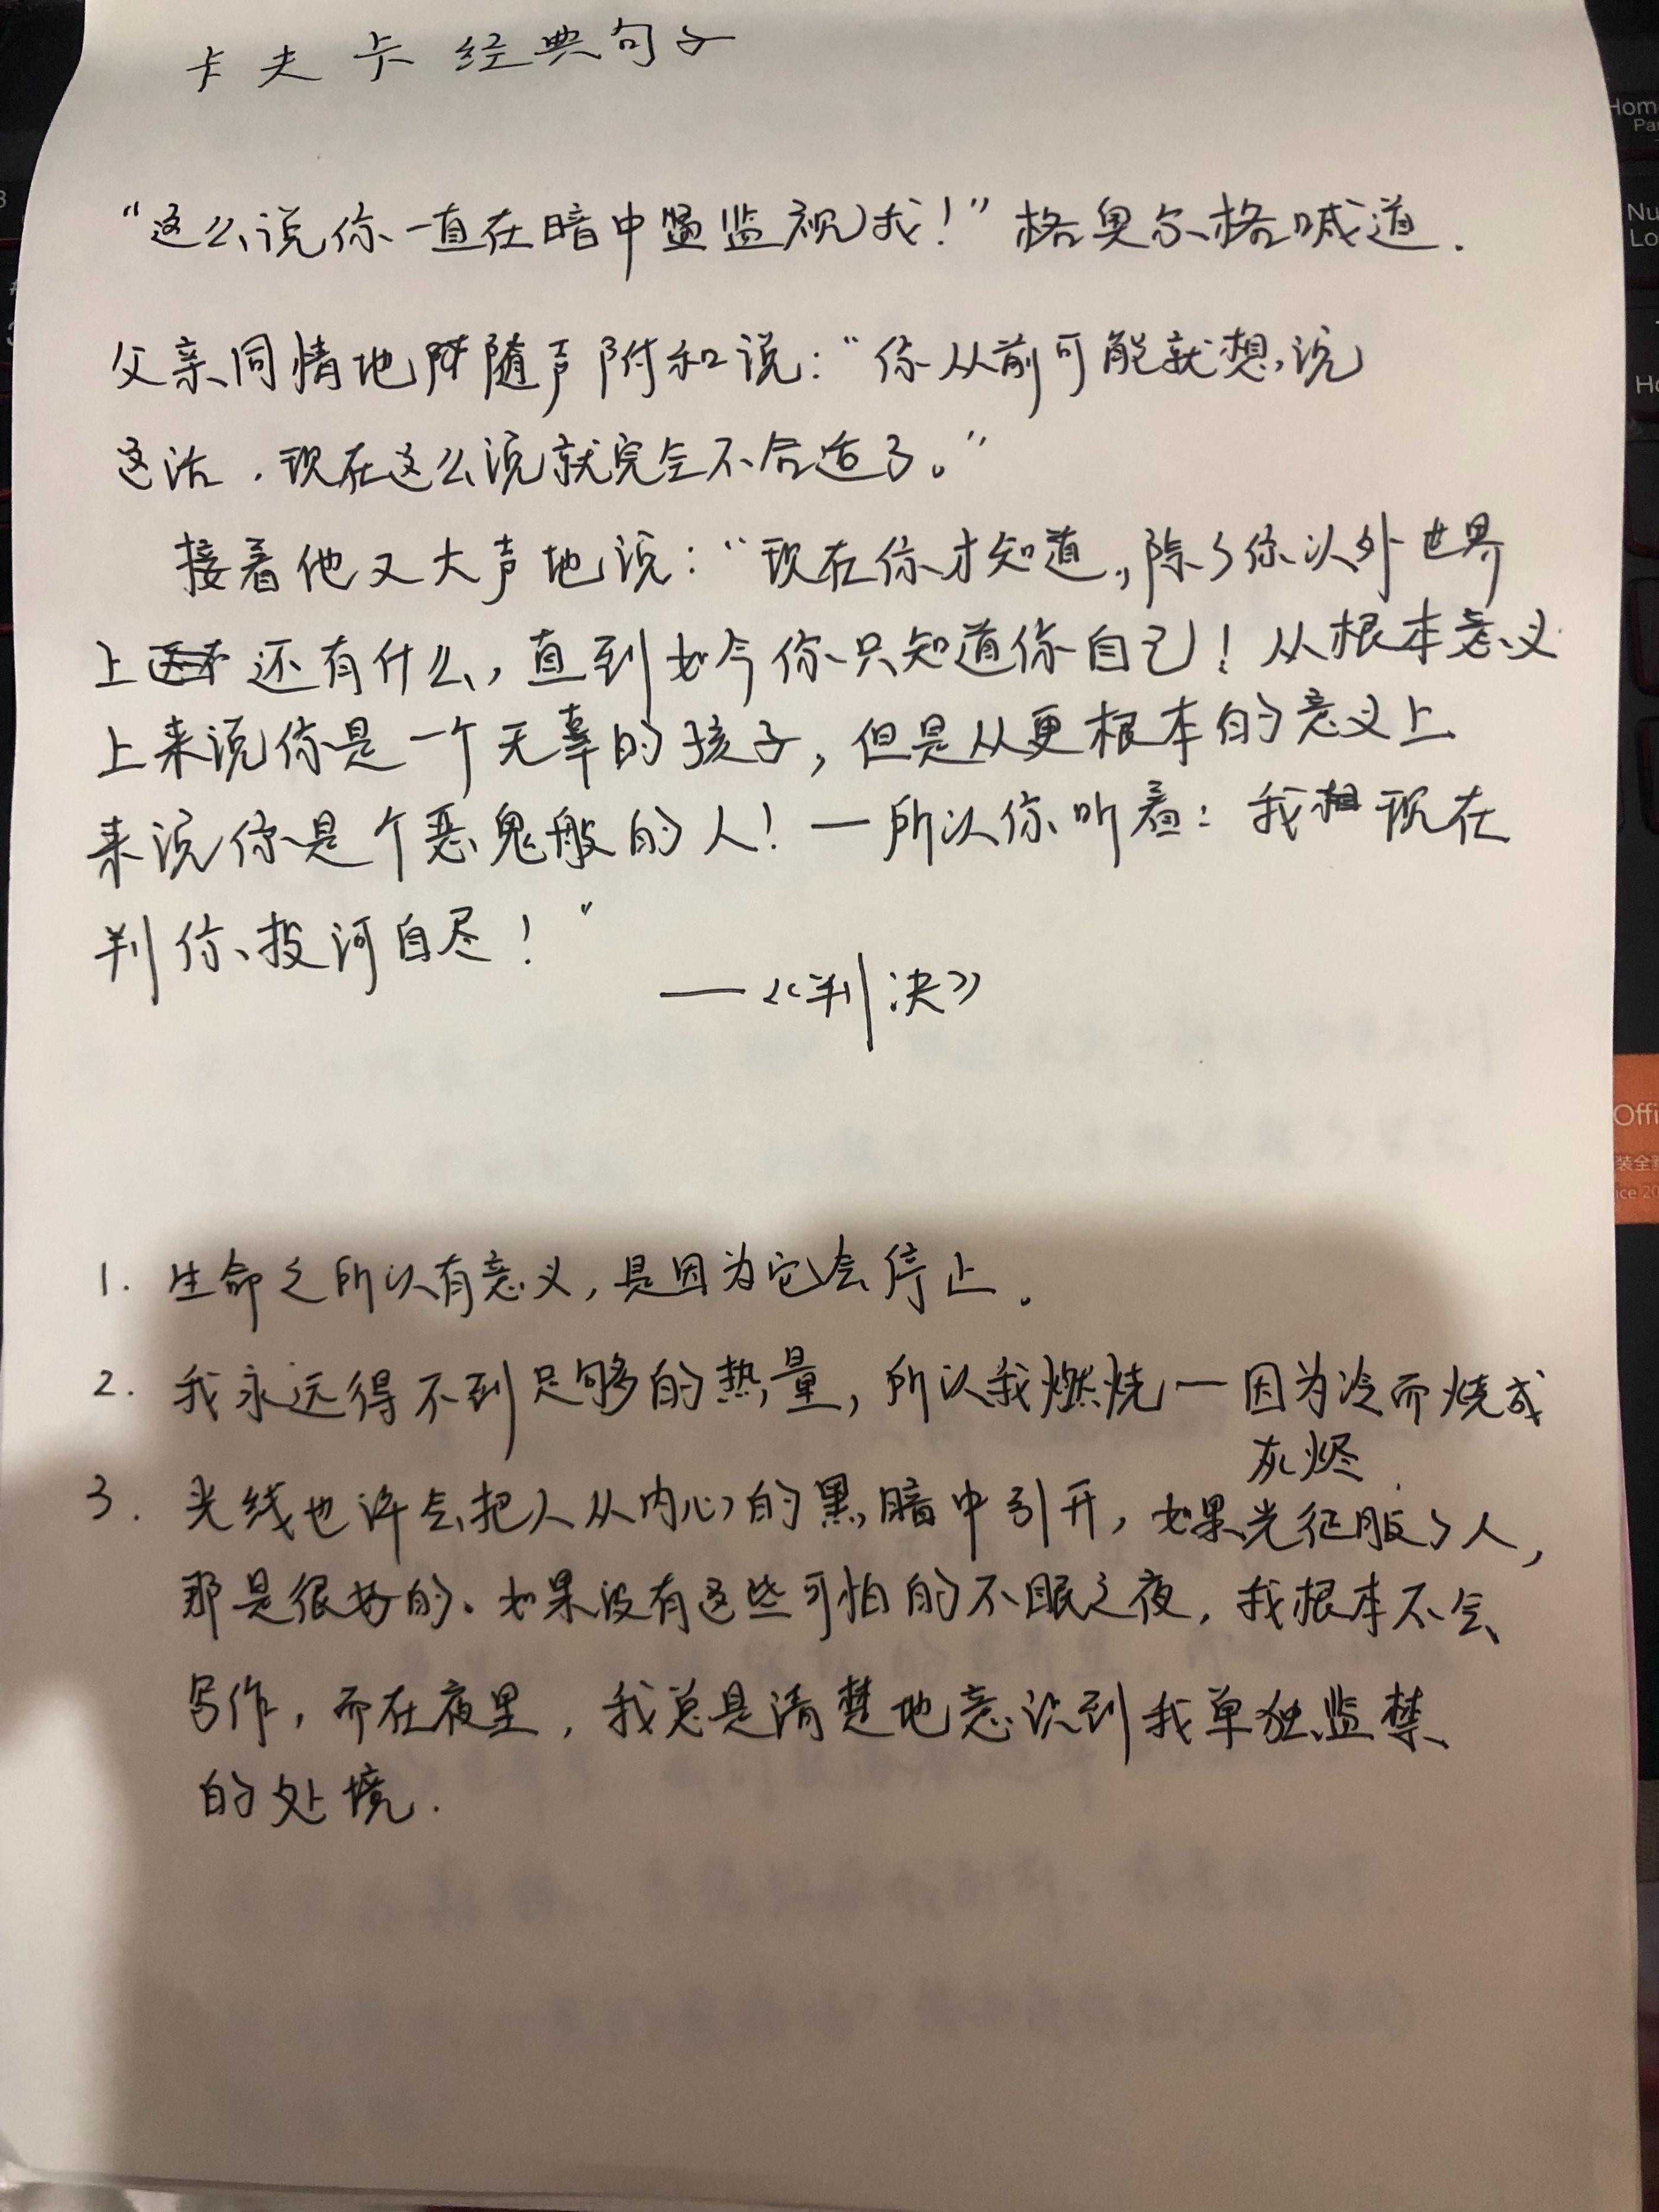 卡夫卡经典句子
“这么说你一直在暗中监视我！”格奥尔格喊道.
父亲同情地随声附和说：“你从前可能就想说
这话，现在这么说就完全不合适了。”
接着他又大声地说：“现在你才知道，除了你以外世界
上还有什么，直到如今你只知道你自己！从根本意义
上来说你是一个无辜的孩子，但是从更根本的意义上
来说你是个恶鬼般的人！—所以你听着：我现在
判你投河自尽！”
——《判决》
1. 生命之所以有意义，是因为它会停止。
2. 我永远得不到足够的热量，所以我燃烧—因为冷而烧成
灰烬.
3. 光线也许会把人从内心的黑暗中引开，如果光征服了人，
那是很好的。如果没有这些可怕的不眠之夜，我根本不会
写作，而在夜里，我总是清楚地意识到我单独监禁
的处境.
Hom
Pau
Nu
Lo
Offi
装全
ice 20